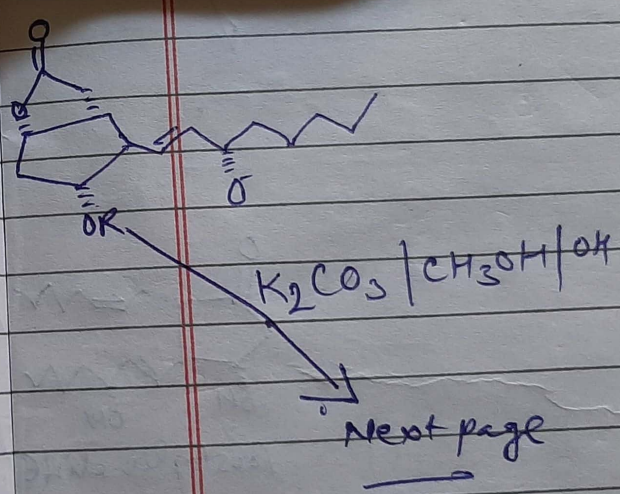 O
O
O
OR
K2CO3 | CH3OH | OH
Next page